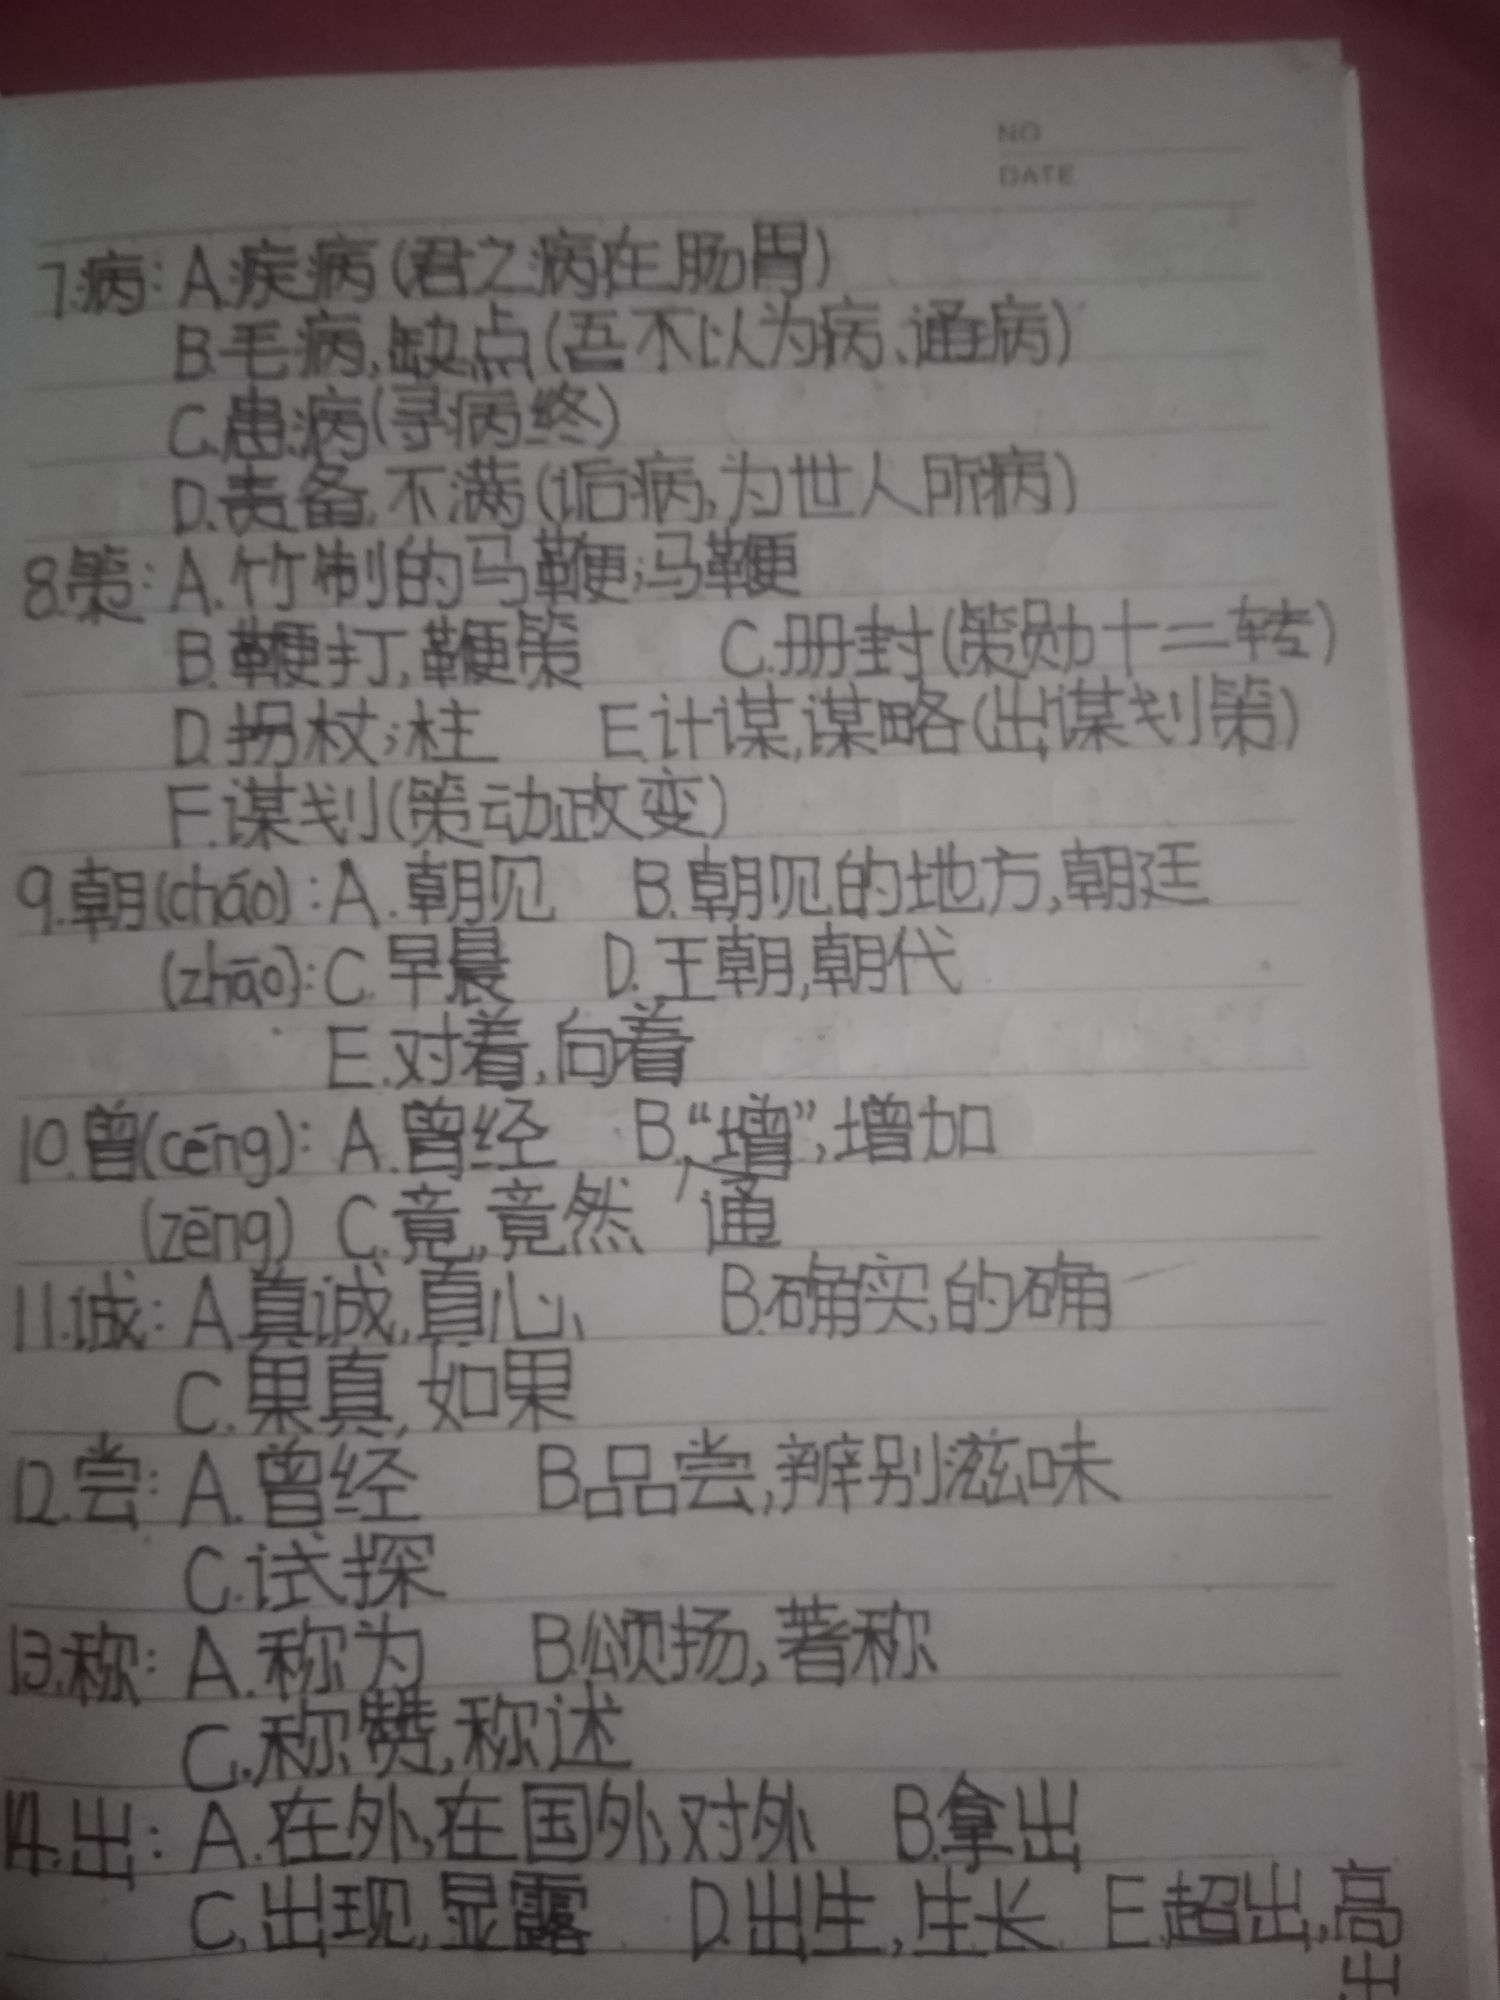 NO
DATE
7.病: A.疾病(君之病在肠胃)
B.毛病,缺点(吾不以为病、通病)
C.患病(寻病终)
D.责备,不满(诟病,为世人所病)
8.策: A.竹制的马鞭;马鞭
B.鞭打,鞭策 C.册封(策勋十二转)
D.拐杖;柱 E.计谋,谋略(出谋划策)
F.谋划(策动政变)
9.朝(cháo): A.朝见 B.朝见的地方,朝廷
(zhāo): C.早晨 D.王朝,朝代
E.对着,向着
10.曾(cēng): A.曾经 B.“增”,增加
(zēng) C.竟,竟然 通
11.诚: A.真诚,真心 B.确实,的确
C.果真,如果
12.尝: A.曾经 B.品尝,辨别滋味
C.试探
13.称: A.称为 B.颂扬,著称
C.称赞,称述
14.出: A.在外,在国外,对外 B.拿出
C.出现,显露 D.出生,生长 E.超出,高
出